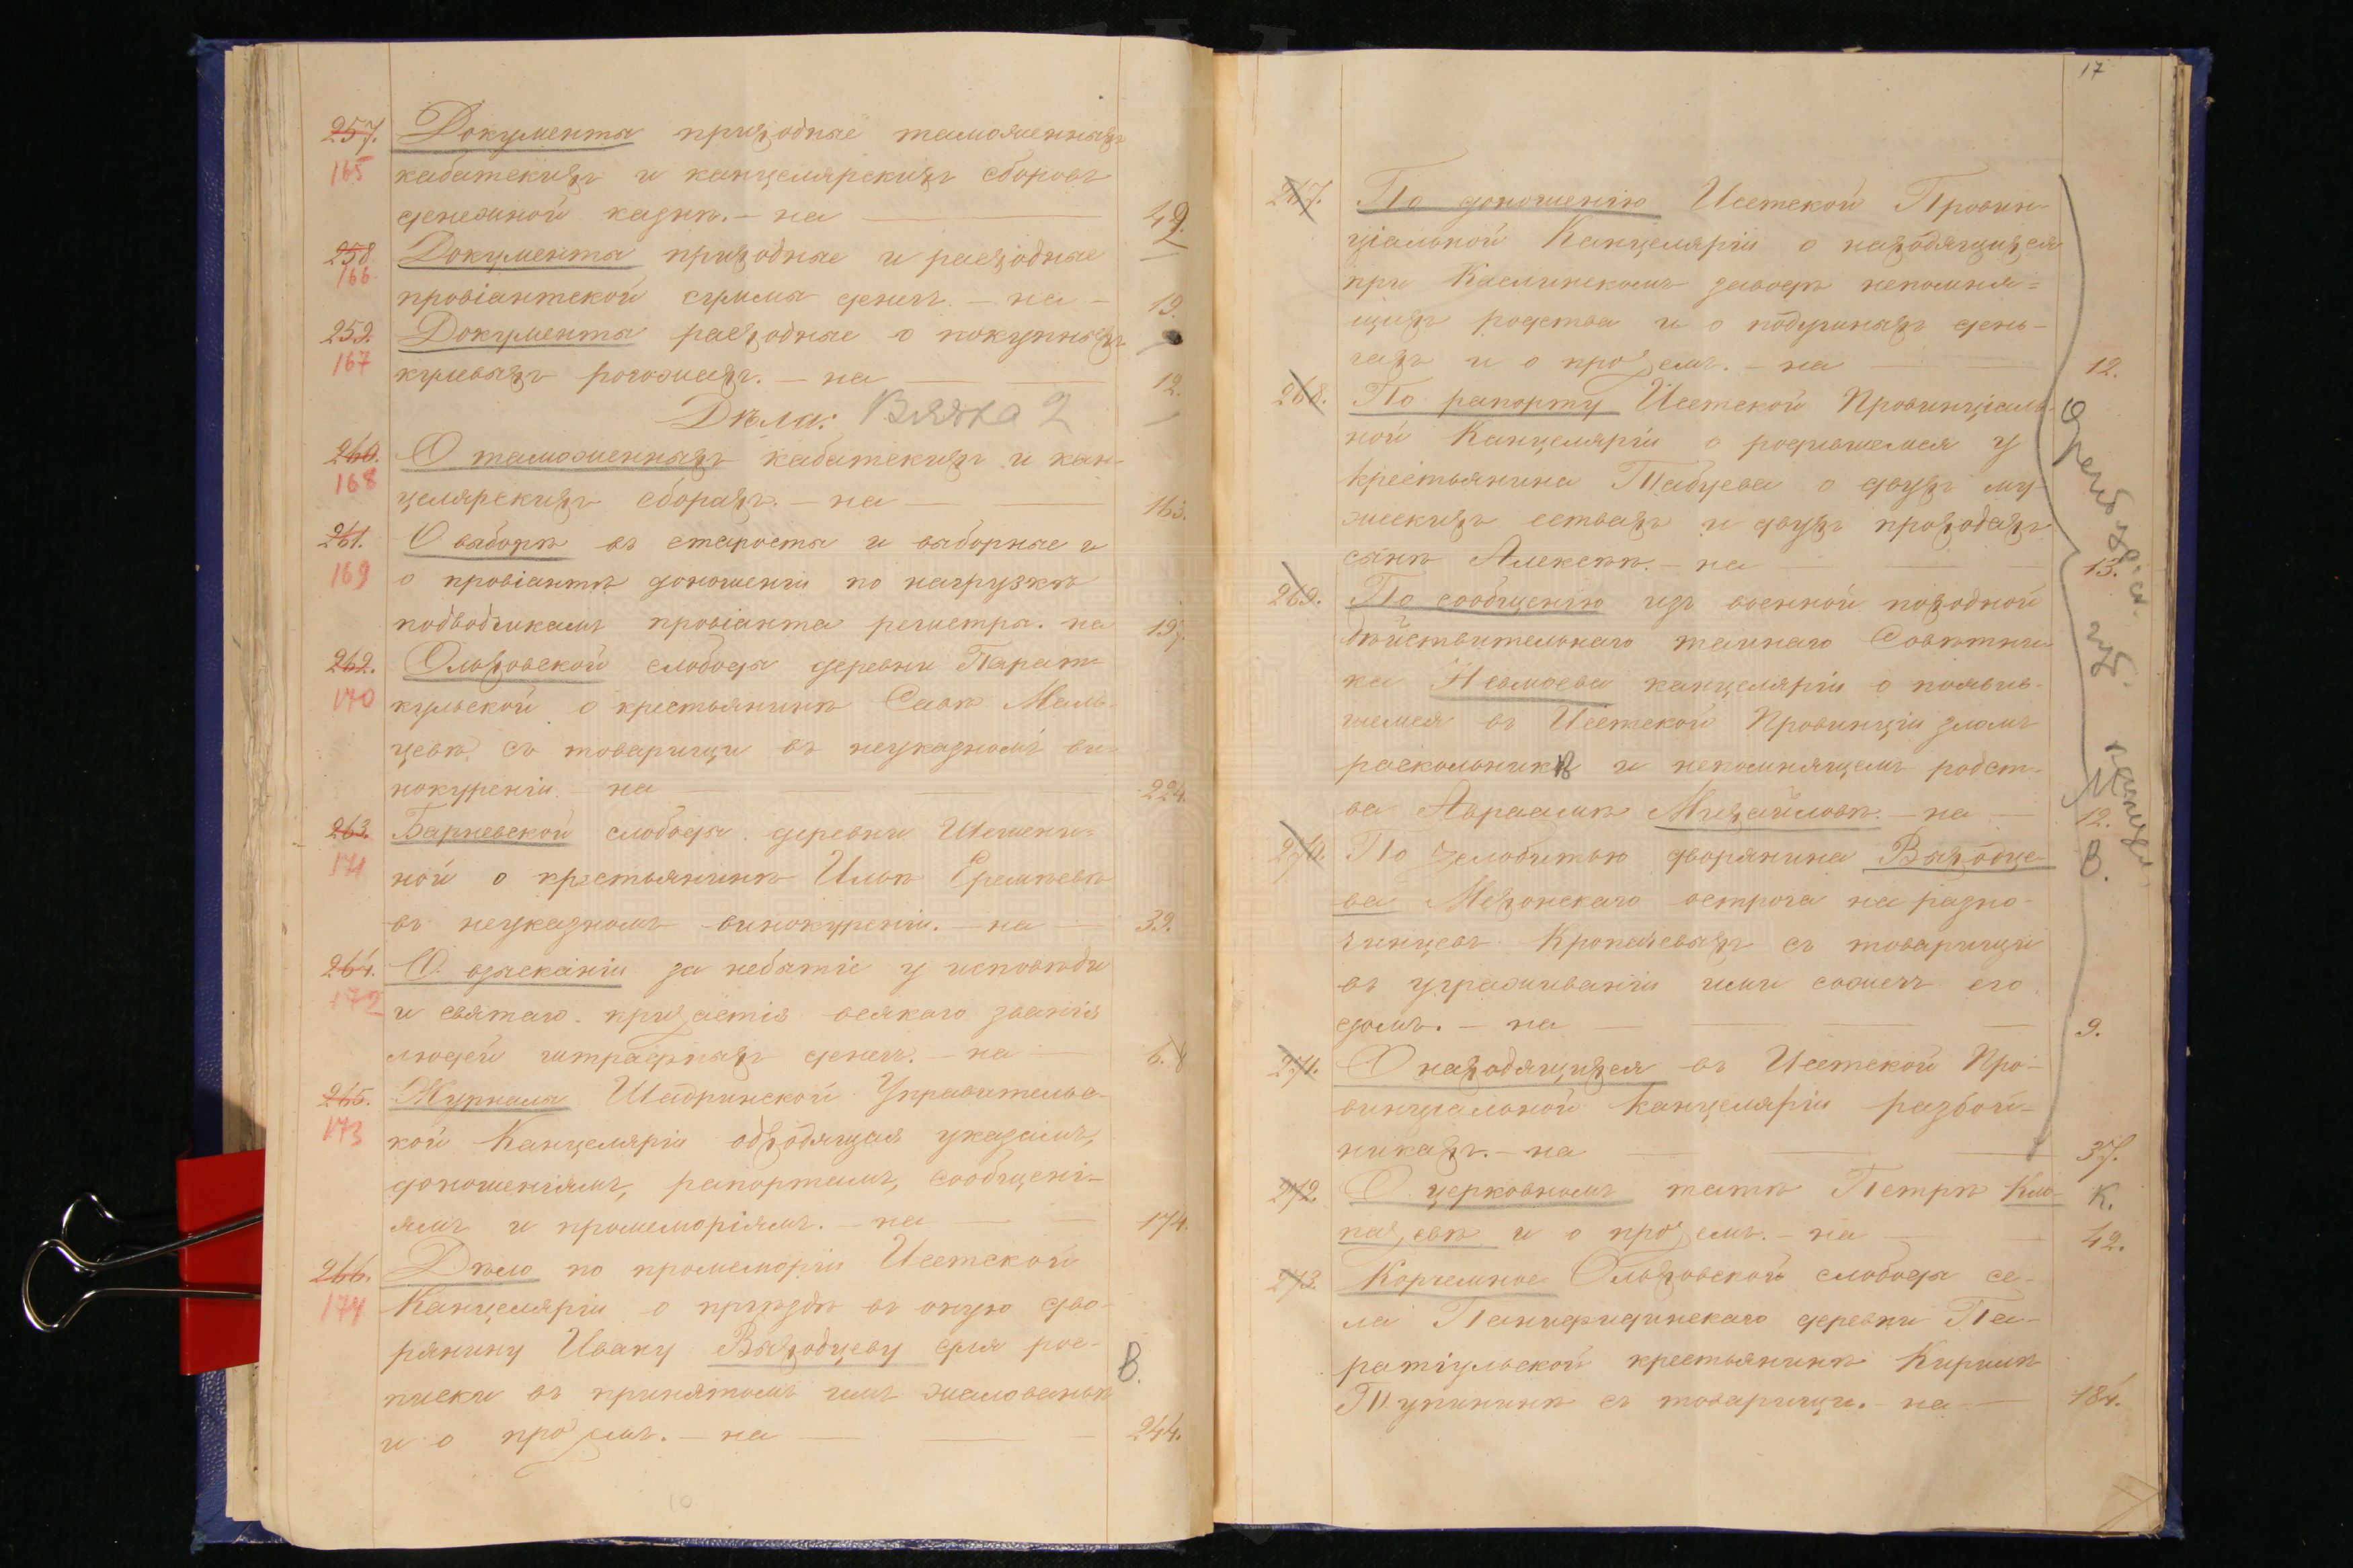 257. Документы приходные таможенныхъ
165 кабатскихъ и канцелярскихъ сборовъ
денежной казны. — на — 49.
258. Документы приходные и расходные
166 провіантской суммы денегъ. — на — 19.
259. Документы расходные о покупныхъ
167 кулевыхъ рогожахъ. — на — 12.
Дѣла: Вязка 2
260. О таможенныхъ кабатскихъ и кан-
168 целярскихъ сборахъ. — на — 163.
261. О выборѣ въ старосты и выборные и
169 о провіантѣ доношеніи по нагрузкѣ
подводчикамъ провіанта регистры. на 197.
262. Ольховской слободы деревни Парат-
170 кульской о крестьянинѣ Савѣ Маль-
цевѣ съ товарищи въ неуказномъ ви-
нокуреніи. — на — 224.
263. Барневской слободы деревни Шешени-
171 ной о крестьянинѣ Ильѣ Еремѣевѣ
въ неуказномъ винокуреніи. — на — 39.
264. О взысканіи за небытіе у исповѣди
172 и святаго причастія всякаго званія
людей штрафныхъ денегъ. — на 6.
265. Журналы Шадринской Управительс-
173 кой Канцеляріи обходящія указамъ,
доношеніямъ, рапортамъ, сообщені-
ямъ и промеморіямъ. — на — 174.
266. Дѣло по промеморіи Исетской
174 Канцеляріи о пріѣздѣ въ оную дво-
рянину Ивану Выходцеву для рос-
писки въ принятомъ имъ жалованьѣ В.
и о прочемъ. — на — 244.
10
17
267. По доношенію Исетской Провин-
ціальной Канцеляріи о находящихся
при Каслинскомъ заводѣ непомня-
щихъ родства и о подушныхъ день-
гахъ и о прочемъ. — на — 12.
268. По рапорту Исетской Провинціаль-
ной Канцеляріи о родившемся у
крестьянина Табуева о двухъ му-
жескихъ ествахъ и двухъ проходахъ
сынѣ Алексѣѣ. — на — 13.
269. По сообщенію изъ военной походной
дѣйствительнаго тайнаго Совѣтни-
ка Неплюева канцеляріи о появив-
шемся въ Исетской Провинціи зломъ
раскольникѣ и непомнящемъ родст-
ва Авраамѣ Михайловѣ. — на — 12.
М
270. По челобитью дворянина Выходце- В.
ва Мехонскаго острога на разно-
чинцевъ Кропачевыхъ съ товарищи
въ угрживаніи ими сожечь его
домъ. — на — 9.
271. О находящихся въ Исетской Про-
винціальной Канцеляріи разбой-
никахъ. — на — 37.
272. О церковномъ татѣ Петрѣ Кол- К.
пачевѣ и о прочемъ. — на — 42.
273. Корчемное Ольховской слободы се-
ла
деревни Па-
раткульской крестьянинѣ Кирилѣ
Тупицинѣ съ товарищи. — на — 184.
Оренбургск. губ. канцел.